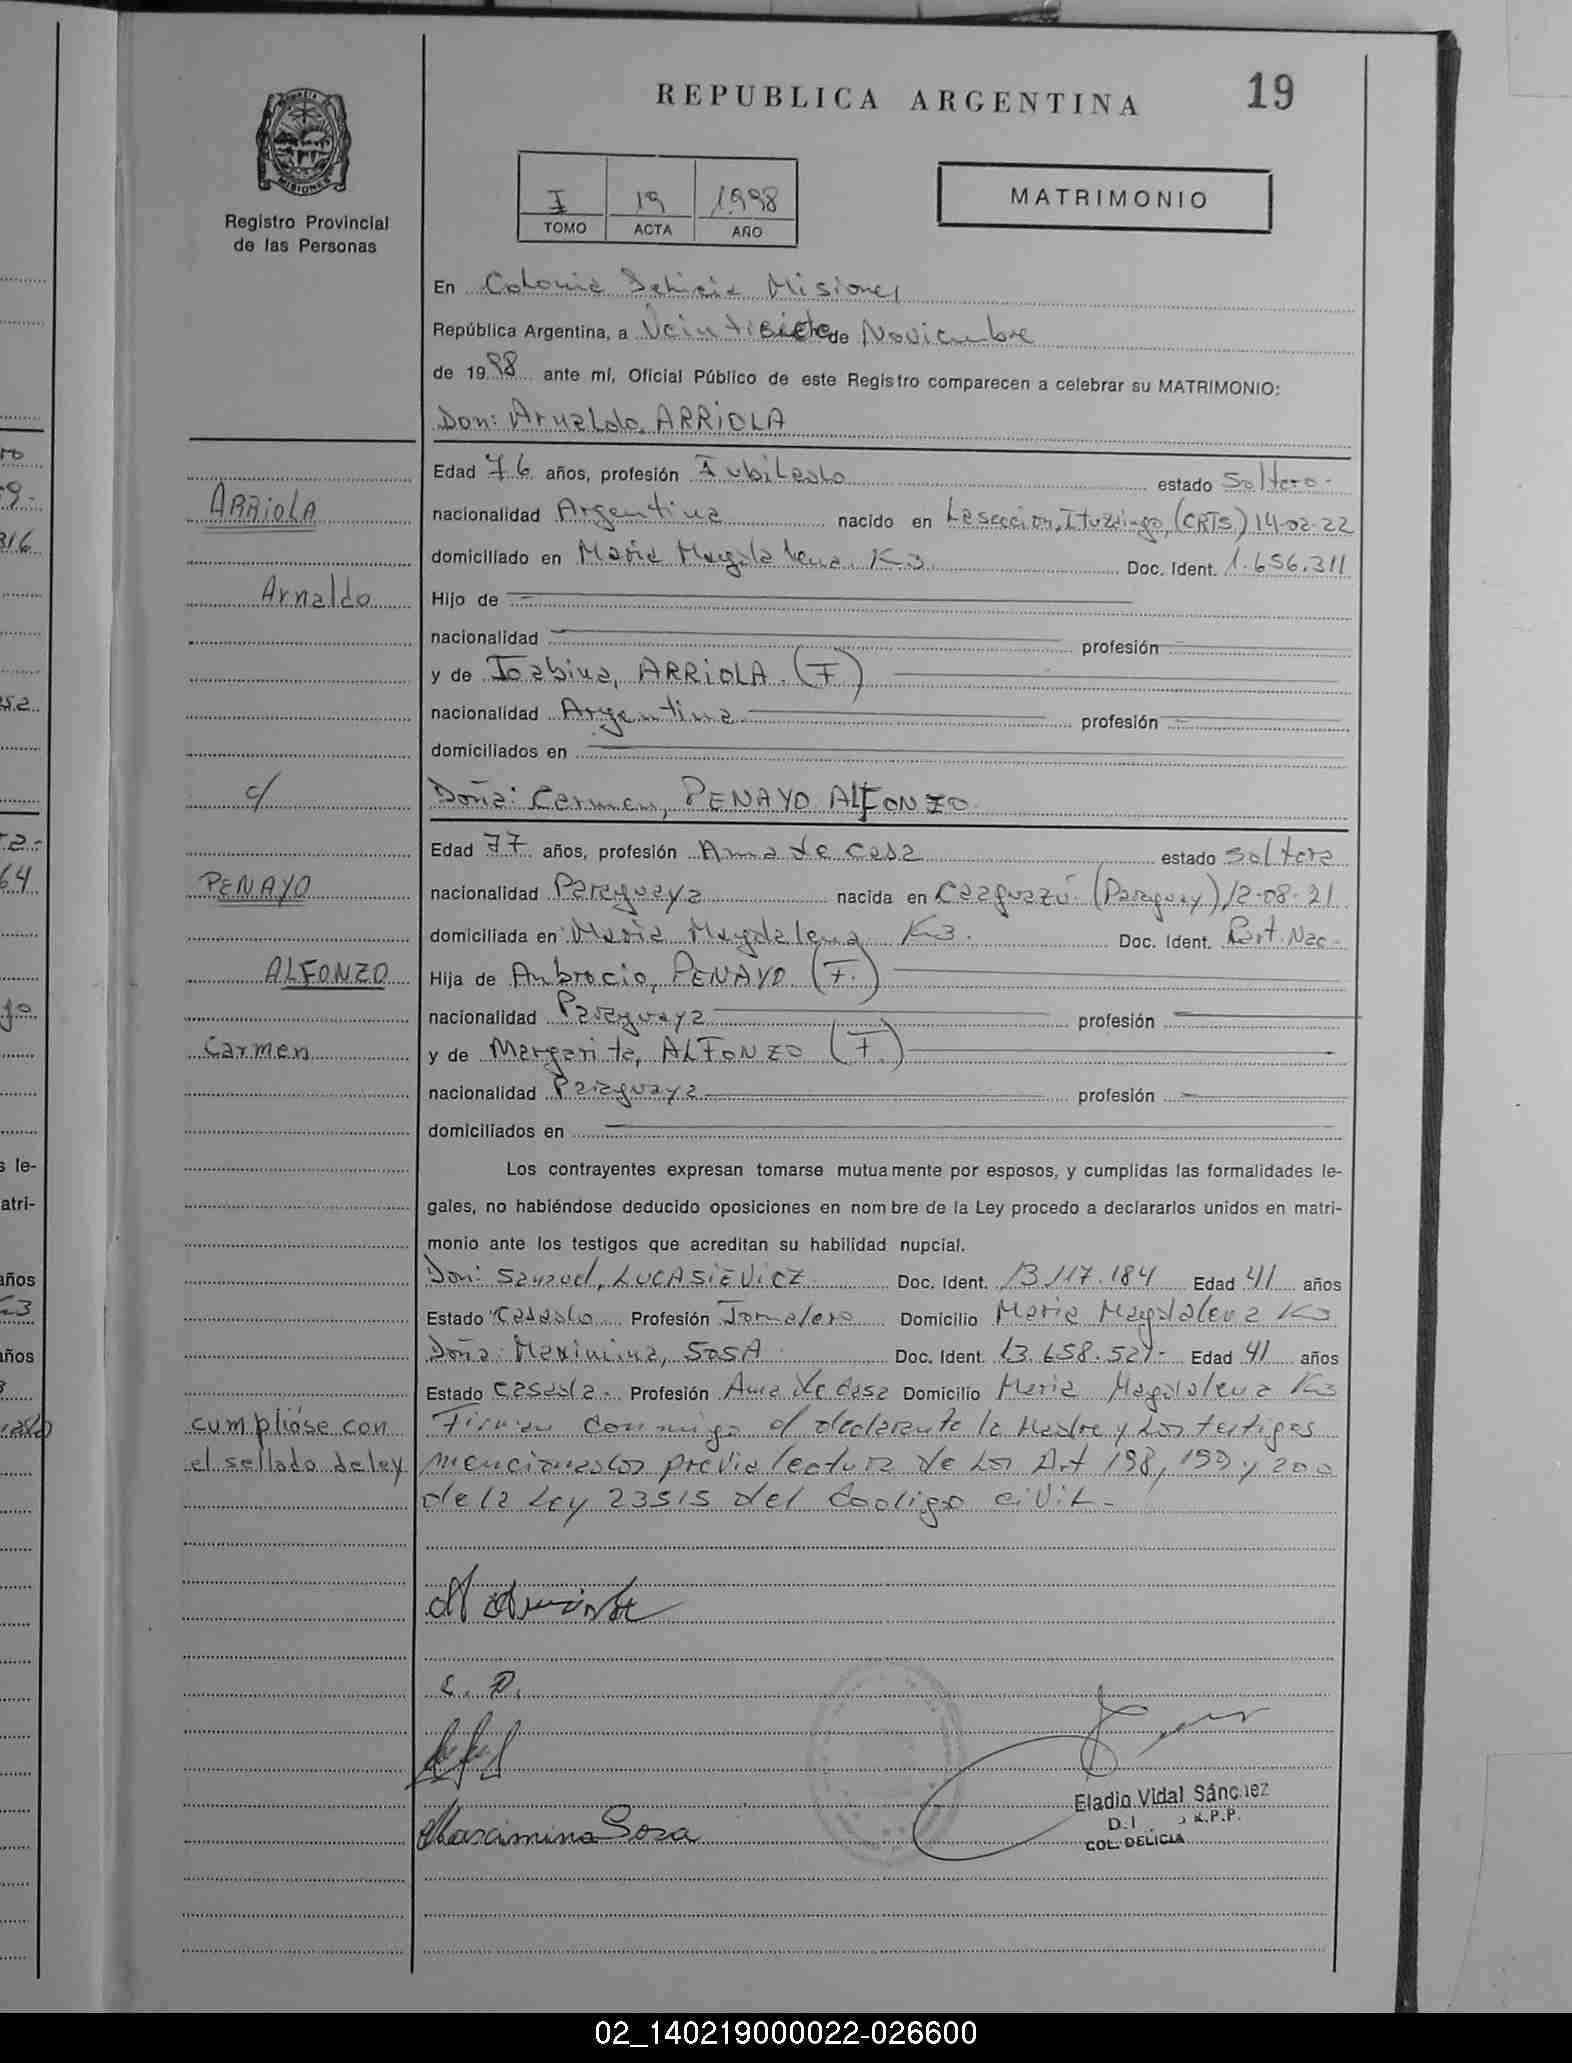 REPUBLICA ARGENTINA
19
MISIONES
Registro Provincial
de las Personas
I 19 1998
TOMO ACTA AÑO
MATRIMONIO
En Colonia Delicia Misiones
República Argentina, a Veintisiete de Noviembre
de 1998 ante mí, Oficial Público de este Registro comparecen a celebrar su MATRIMONIO:
Don: Arnaldo, ARRIOLA
Edad 76 años, profesión Jubilado estado Soltero-
nacionalidad Argentina nacido en La seccion, Ituzaingo, (CRTS) 14-02-22
domiciliado en Maria Magdalena K3. Doc. Ident. 1.656.311
Hijo de
nacionalidad profesión
y de Joabina, ARRIOLA. (F)
nacionalidad Argentina profesión
domiciliados en
Doña: Carmen, PENAYO ALFONZO
Edad 77 años, profesión Ama de casa estado Soltera
nacionalidad Paraguaya nacida en Caaguazú (Paraguay) 12-08-21
domiciliada en Maria Magdalena K3. Doc. Ident. Part. Nac-
Hija de Anbrocio, PENAYO (F.)
nacionalidad Paraguaya profesión
y de Margarita, ALFONZO (F.)
nacionalidad Paraguaya profesión
domiciliados en
Los contrayentes expresan tomarse mutuamente por esposos, y cumplidas las formalidades le-
gales, no habiéndose deducido oposiciones en nombre de la Ley procedo a declararlos unidos en matri-
monio ante los testigos que acreditan su habilidad nupcial.
Don: Samuel, LUCASIEVICZ Doc. Ident. 13.117.184 Edad 41 años
Estado Casado Profesión Jornalero Domicilio Maria Magdalena K3
Doña: Maximina, SOSA Doc. Ident. 13.658.527- Edad 41 años
Estado Casada- Profesión Ama de casa Domicilio Maria Magdalena K3
Firman conmigo el declarante la Madre y los testigos
mencionados previa lectura de los Art 198, 199 y 200
de la Ley 23515 del Codigo civil-
ARRIOLA
Arnaldo
c/
PENAYO
ALFONZO
Carmen
cumplióse con
el sellado de ley
C. P.
Maximina Sosa
Eladio Vidal Sánchez
R.P.P.
COL. DELICIA
02_140219000022-026600